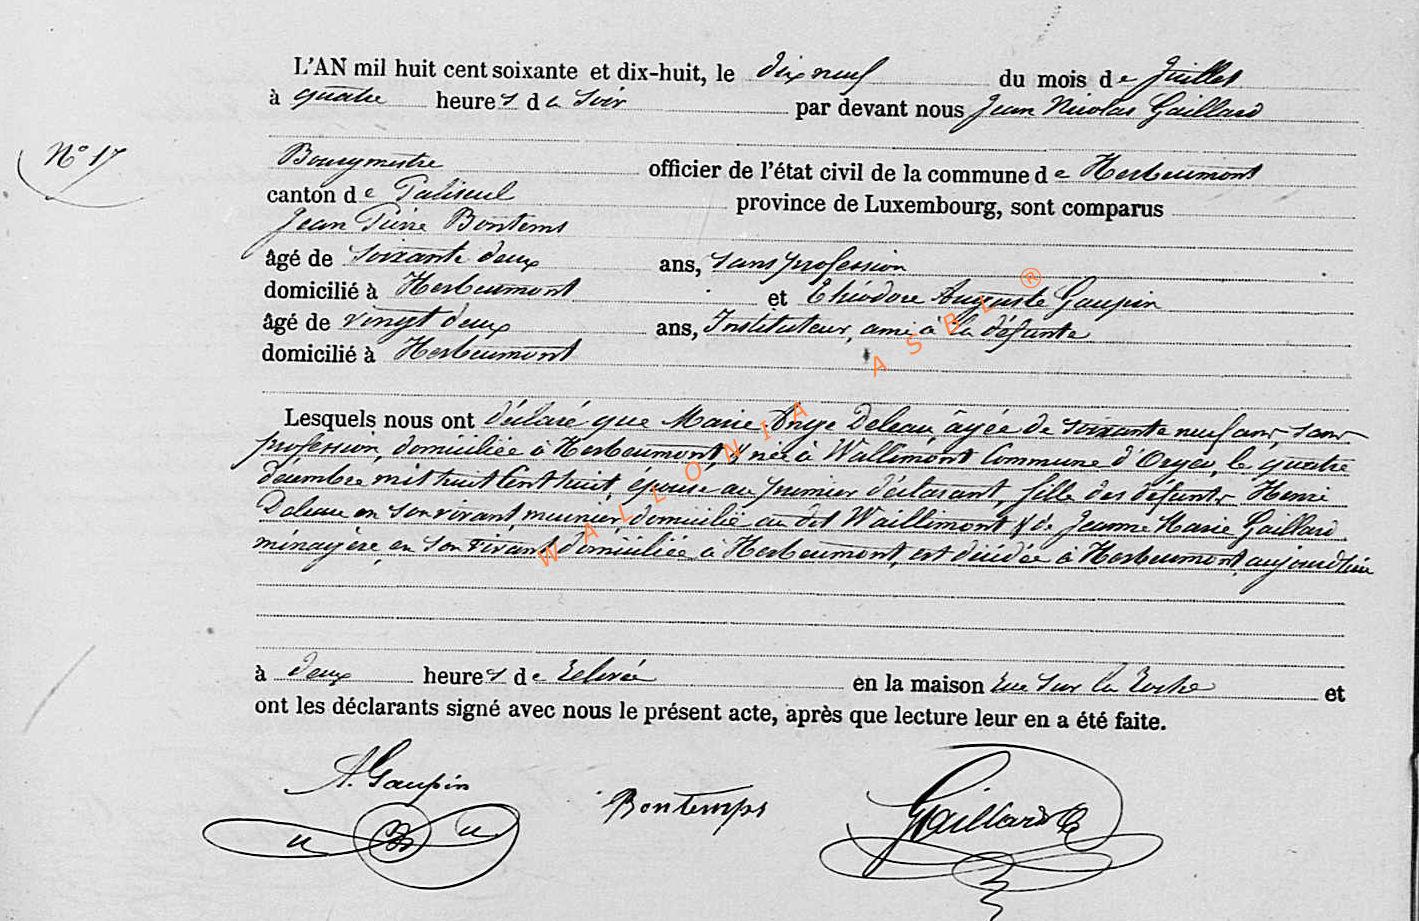 L'AN mil huit cent soixante et dix-huit, le dix neuf du mois de Juillet
à quatre heures du soir par devant nous Jean Nicolas Gaillard
N° 17
Bourgmestre officier de l'état civil de la commune de Herbeumont
canton de Paliseul province de Luxembourg, sont comparus
Jean Pierre Bontems
âgé de soixante deux ans, sans profession
domicilié à Herbeumont et Théodore Auguste Gaupin
âgé de vingt deux ans, Instituteur, ami à la défunte
domicilié à Herbeumont
Lesquels nous ont déclaré que Marie Deleau âgée de soixante neuf ans, sans
profession, domiciliée à Herbeumont, y née à Wallimont Commune d'Orgeo, le quatre
décembre mil huit cent huit, épouse au premier déclarant, fille des défunts Henri
Deleau en son vivant meunier domicilié au dit Waillimont & de Jeanne Marie Gaillard
ménagère, en son vivant domiciliée à Herbeumont, est décédée à Herbeumont aujourd'hui
à deux heures de relevée en la maison rue sur la Roche et
ont les déclarants signé avec nous le présent acte, après que lecture leur en a été faite.
A. Gaupin Bontemps Gaillard
WALLONIA ASBL ®